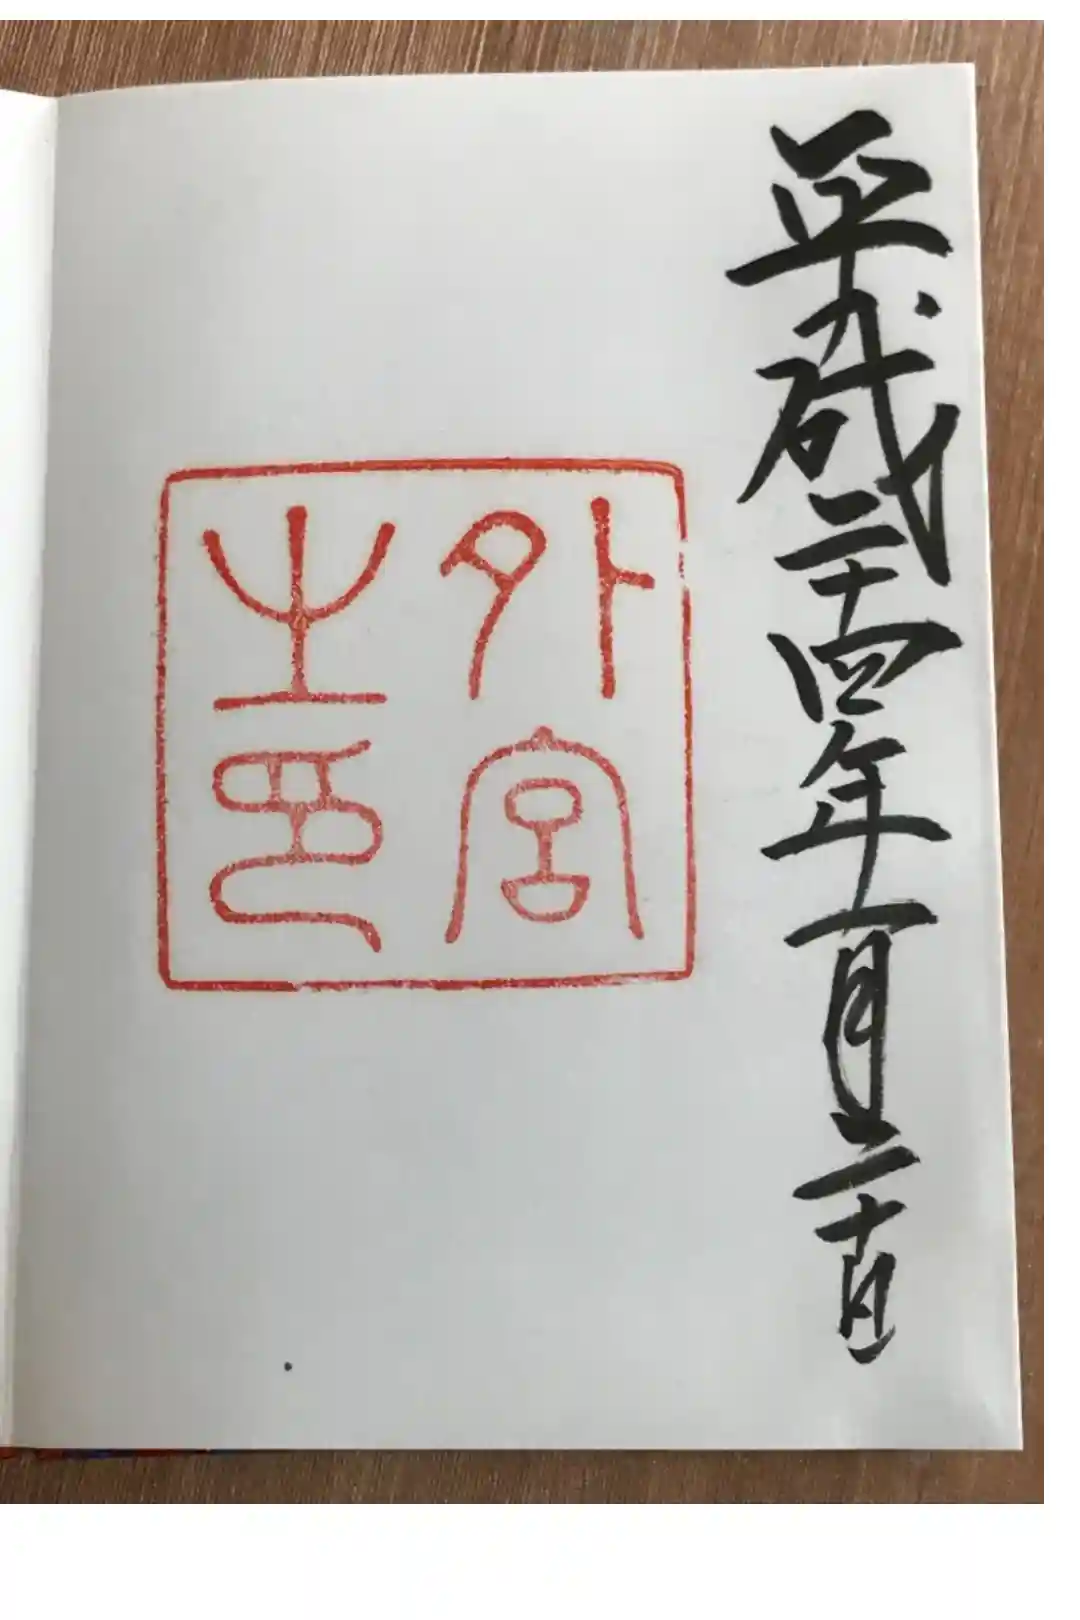 平成二十四年一月二十日
外宮
之印